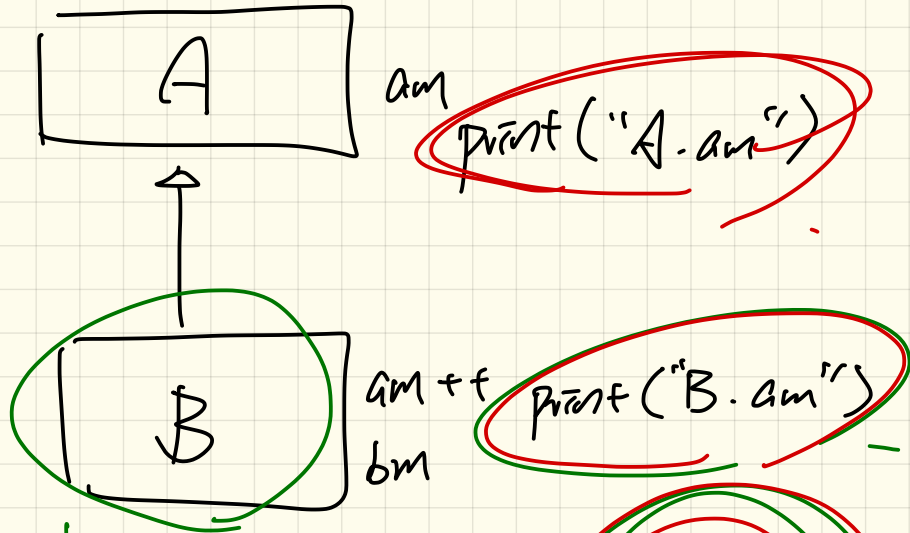 A
am
print("A.am")
B
am ++ print("B.am")
bm